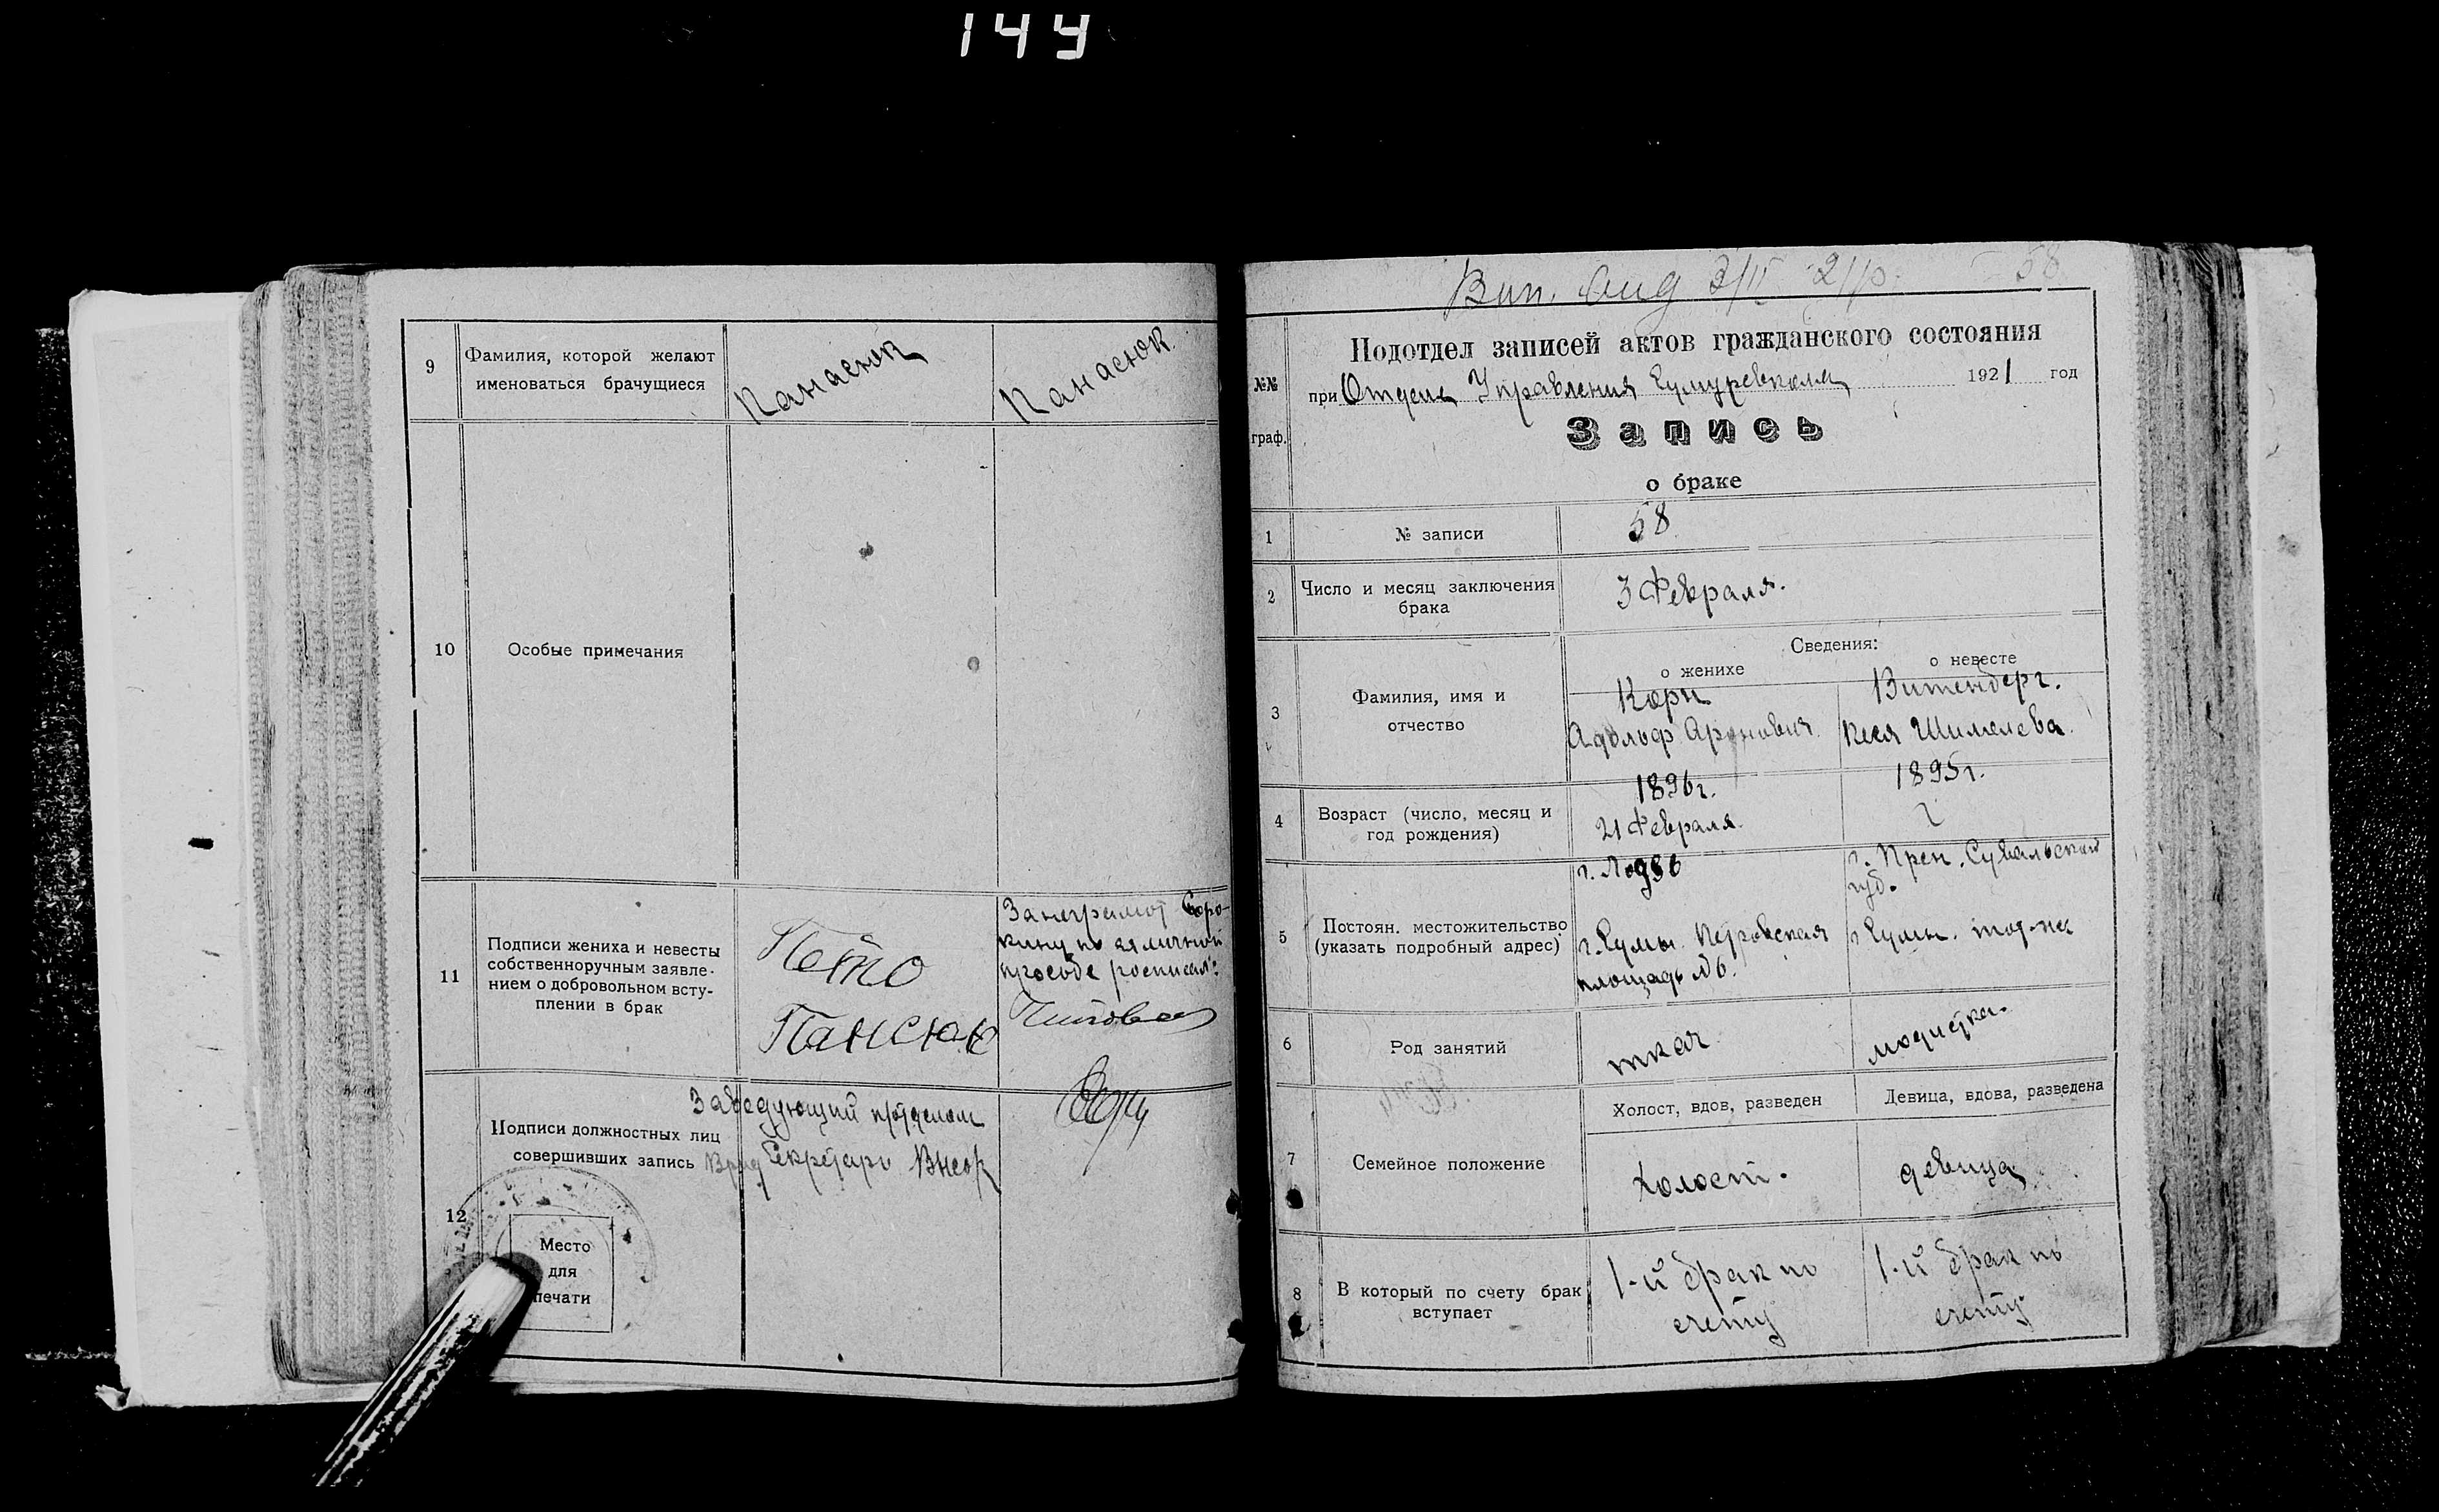 144
9
Фамилия, которой желают
именоваться брачущиеся
Панасюк
Панасюк
10
Особые примечания
11
Подписи жениха и невесты
собственноручным заявле-
нием о добровольном всту-
плении в брак
Петро
Пансюк
За неграмот Соро-
кину по ея личной
прособе росписал:
12
Подписи должностных лиц
совершивших запись
Заведующий п/отделом
Врид Секретаря
Место
для
печати
Вып. 3/II 21 р. 58
№№
граф.
Подотдел записей актов гражданского состояния
при Отделе Управления Сумуревкома 1921 год
Запись
о браке
1
№ записи
58
2
Число и месяц заключения
брака
3 Февраля.
Сведения:
о женихе
о невесте
3
Фамилия, имя и
отчество
Корн
Адольф Аронович
Витенберг.
Песя Шимелева.
4
Возраст (число, месяц и
год рождения)
1896 г.
21 Февраля.
1895 г.
5
Постоян. местожительство
(указать подробный адрес)
г. Лодзь
г. Сумы. Петровская
площадь №6.
г. Прен. Сувальской
губ.
г. Сумы.
6
Род занятий
ткач
модистка.
7
Семейное положение
Холост, вдов, разведен
Девица, вдова, разведена
Холост.
девица
8
В который по счету брак
вступает
1-й брак по
счету
1-й брак по
счету